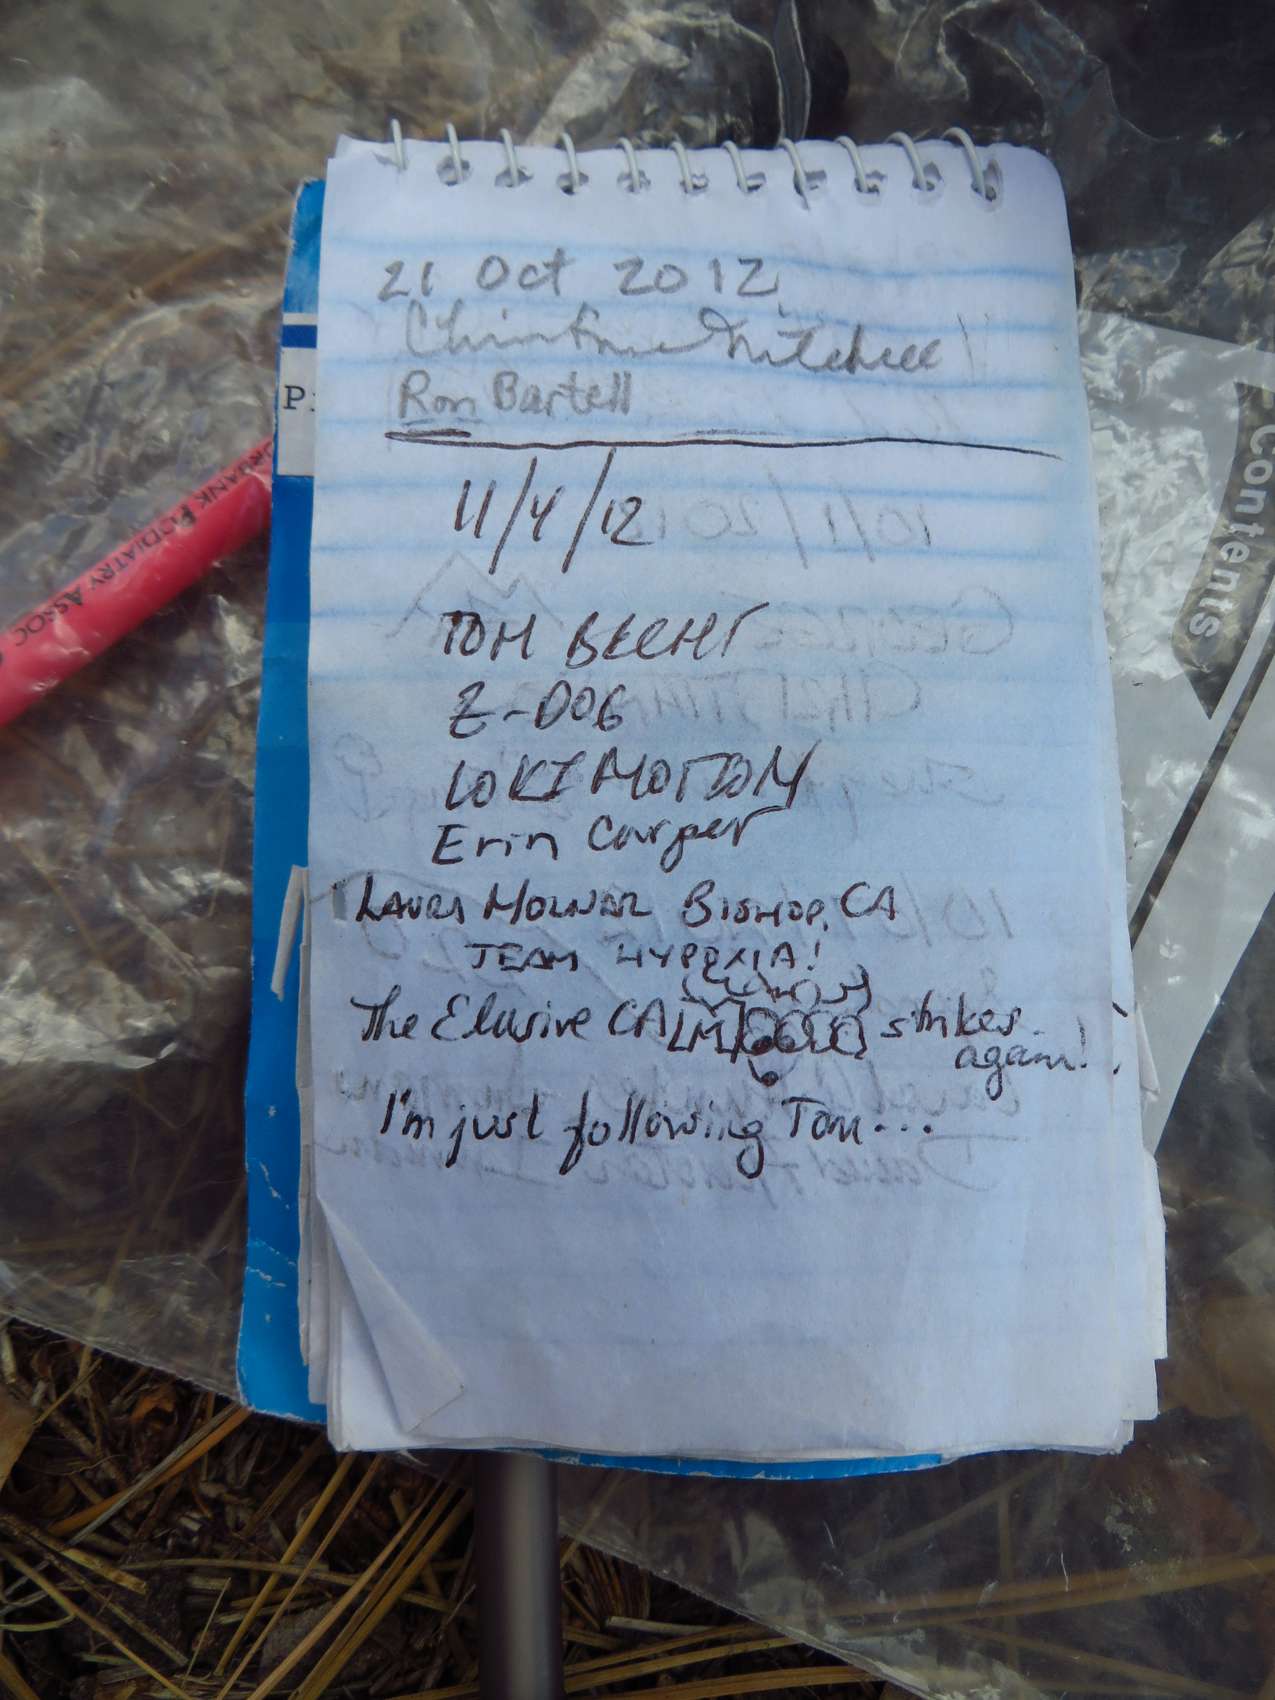 21 Oct 2012
Christine Mitchell
Ron Bartell
11/4/12
TOM BECHT
Z-DOG
LOKI MOTION
Erin Carper
LAURA MOLNAR BISHOP, CA
TEAM HYPOXIA!
The Elusive CALM strikes
again!
I'm just following Tom...
P
URBANK PODIATRY ASSOC
Contents